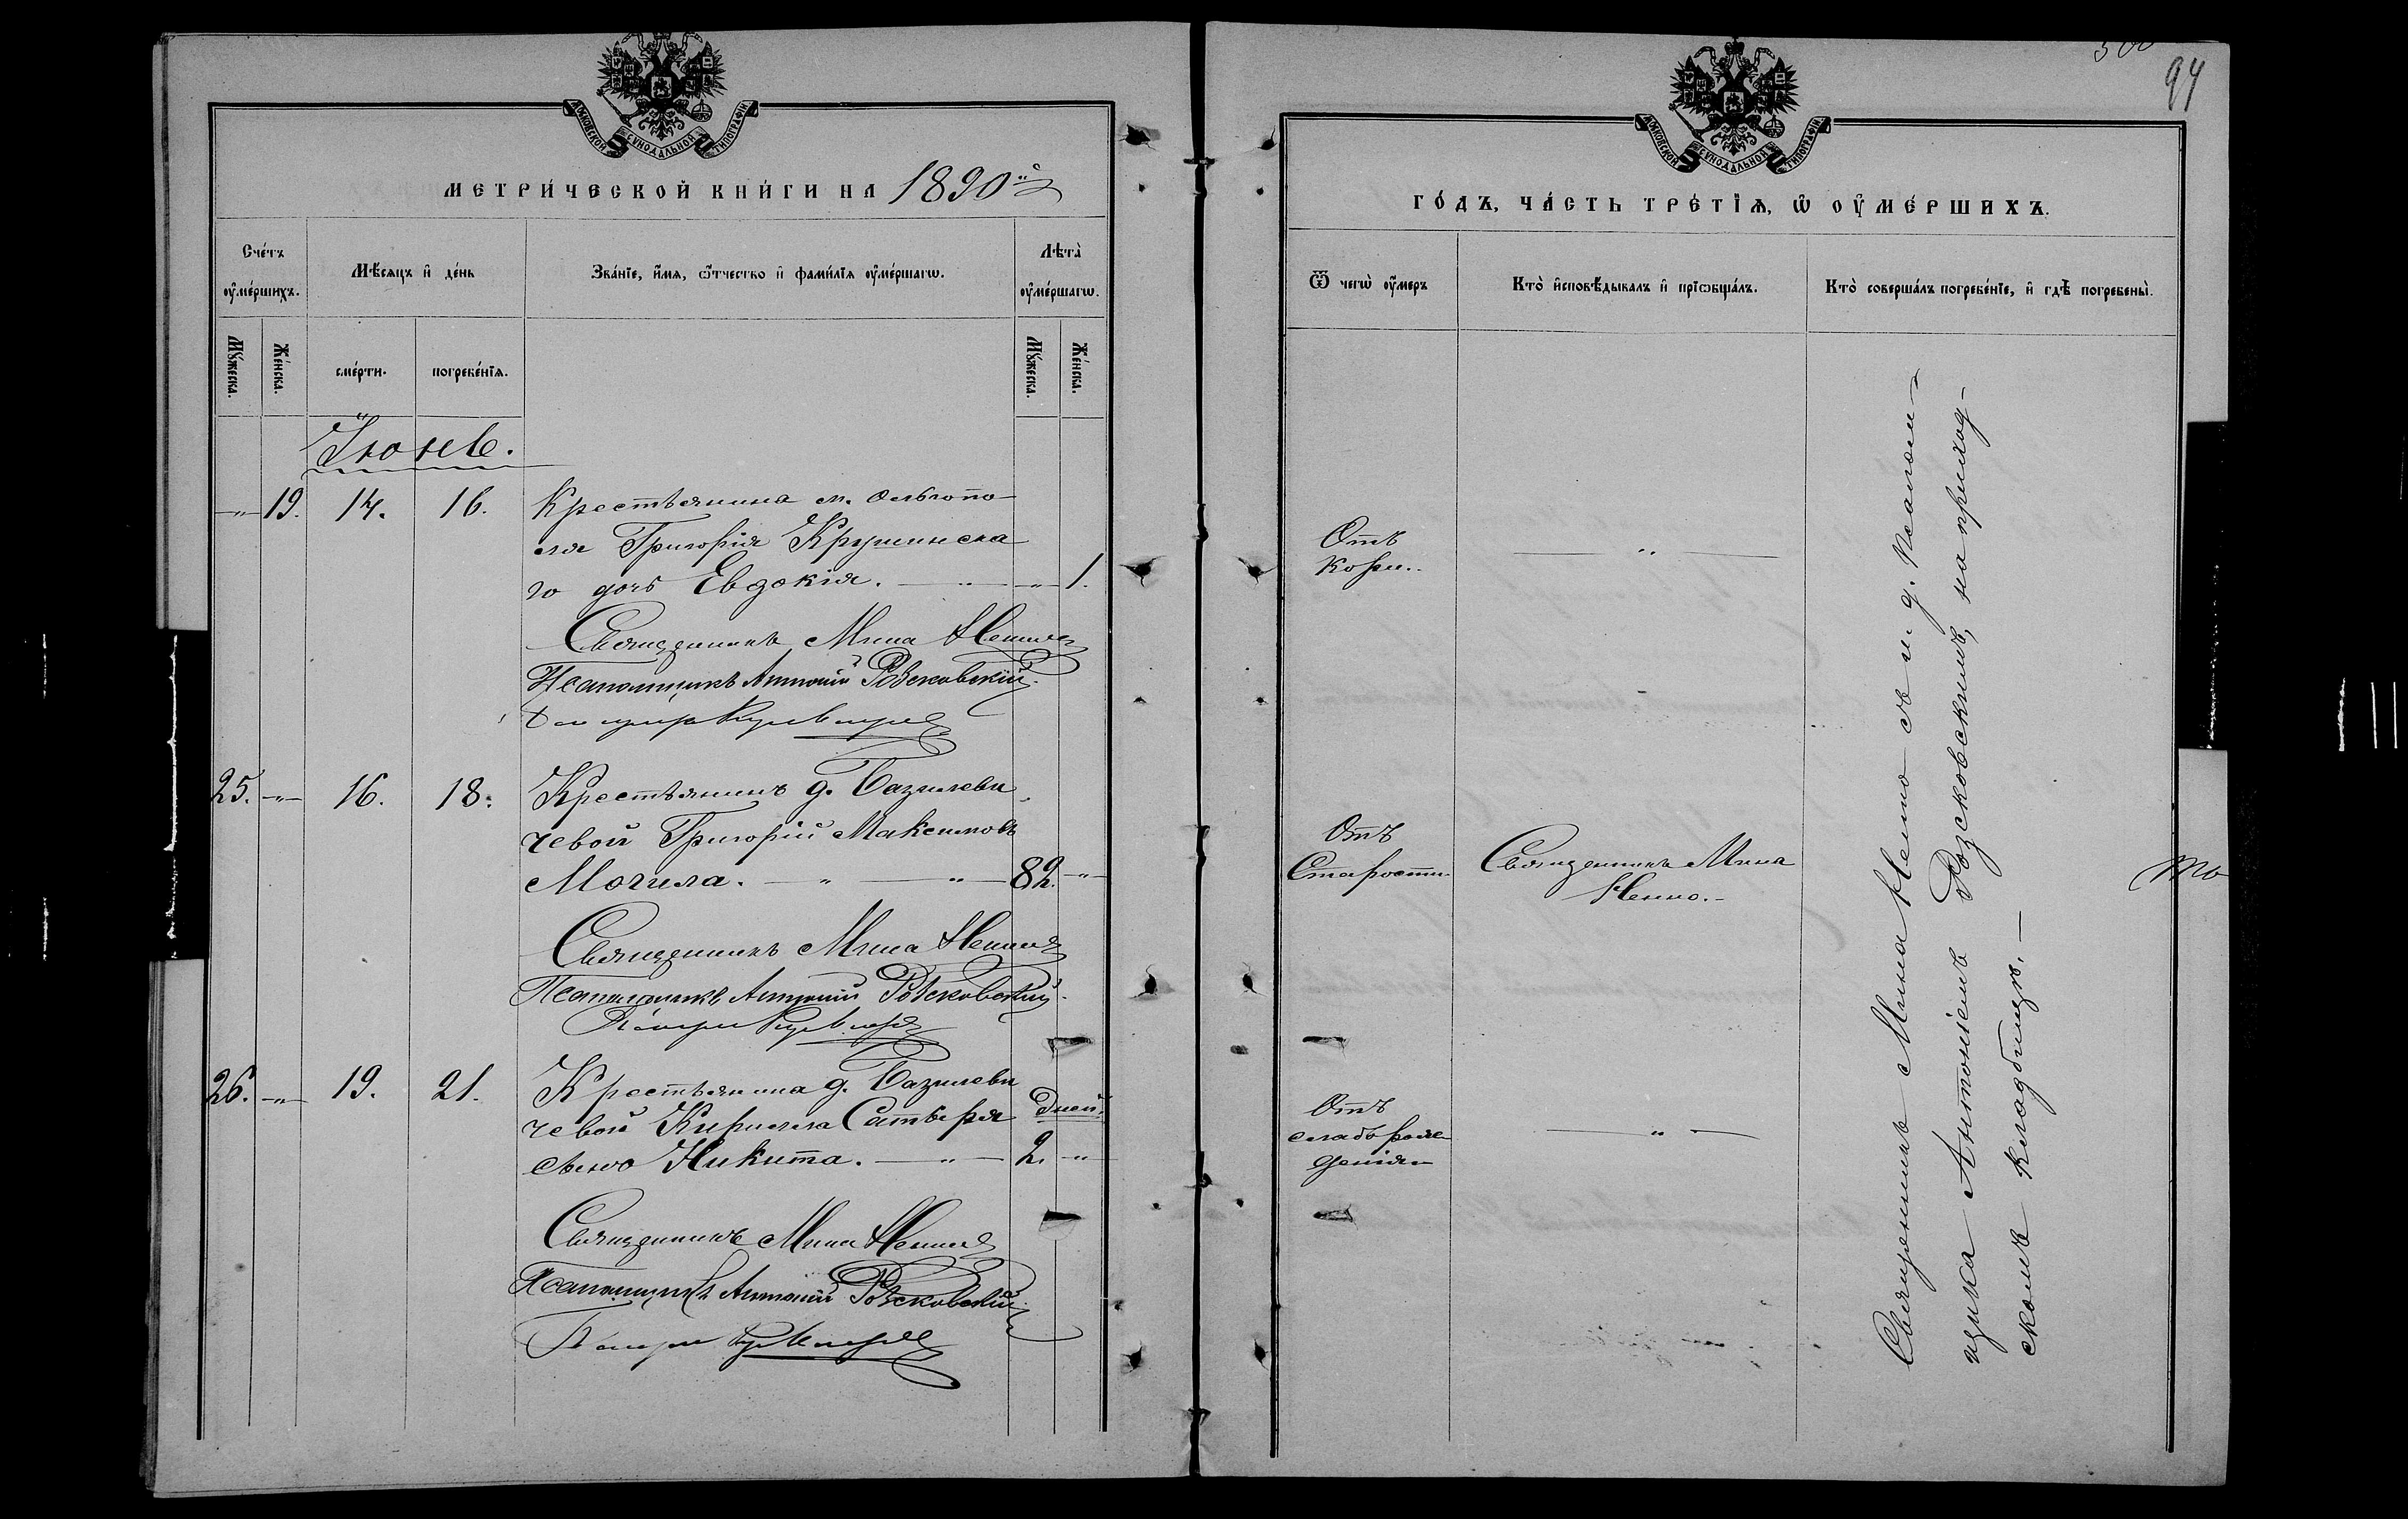 МОСКОВСКОЙ СѴНОДАЛЬНОЙ ТИПОГРАФІИ
МЕТРИ́ЧЕСКОЙ КНИ́ГИ НА 1890й
Сче́тъ ᲂу҆ме́ршихъ.
Мѣ́сѧцъ и҆ де́нь
Зва́нїе, и҆́мѧ, ѻ҆́тчество и҆ фами́лїѧ ᲂу҆ме́ршагѡ.
Лѣта̀ ᲂу҆ме́ршагѡ.
Мꙋ́жеска.
Же́нска.
сме́рти.
погребе́нїѧ.
Мꙋ́жеска.
Же́нска.
Іюнь.
-"- 19. 14. 16. Крестьянина м. Ольгопо-
ля Григорія Крушинска
го дочь Евдокія. — " — -"- 1.
Священникъ Мина Ненно
Псаломщикъ Антоній Розсковскій.
25. -"- 16. 18. Крестьянинъ д. Базилеви
чевой Григорій Максимовъ
Могила. — " — " — 82. -"-
Священникъ Мина Ненно
Псаломщикъ Антоній Розсковскій.
26. -"- 19. 21. Крестьянина д. Базилеви
чевой Кирилла Сатыря дней.
сынъ Никита. — " — 2. -"-
Священникъ Мина Ненно
Псаломщикъ Антоній Розсковскій.
94
МОСКОВСКОЙ СѴНОДАЛЬНОЙ ТИПОГРАФІИ
ГО́ДЪ, ЧА́СТЬ ТРЕ́ТЇѦ, Ѽ ОУ҆МЕ́РШИХЪ.
Ѿ чегѡ̀ ᲂу҆́меръ
Кто̀ и҆сповѣ́дывалъ и҆ прїѡбща́лъ.
Кто̀ соверша́лъ погребе́нїе, и҆ гдѣ̀ погребены̀.
Отъ
кори..
— " —
Отъ
Старости.
Священникъ Мина
Ненно.-
Отъ
слаборож
денія
— " —
Священникъ Мина Ненно съ и. д. псалом-
щика Антоніемъ Розсковскимъ, на приход-
скомъ кладбищѣ. —